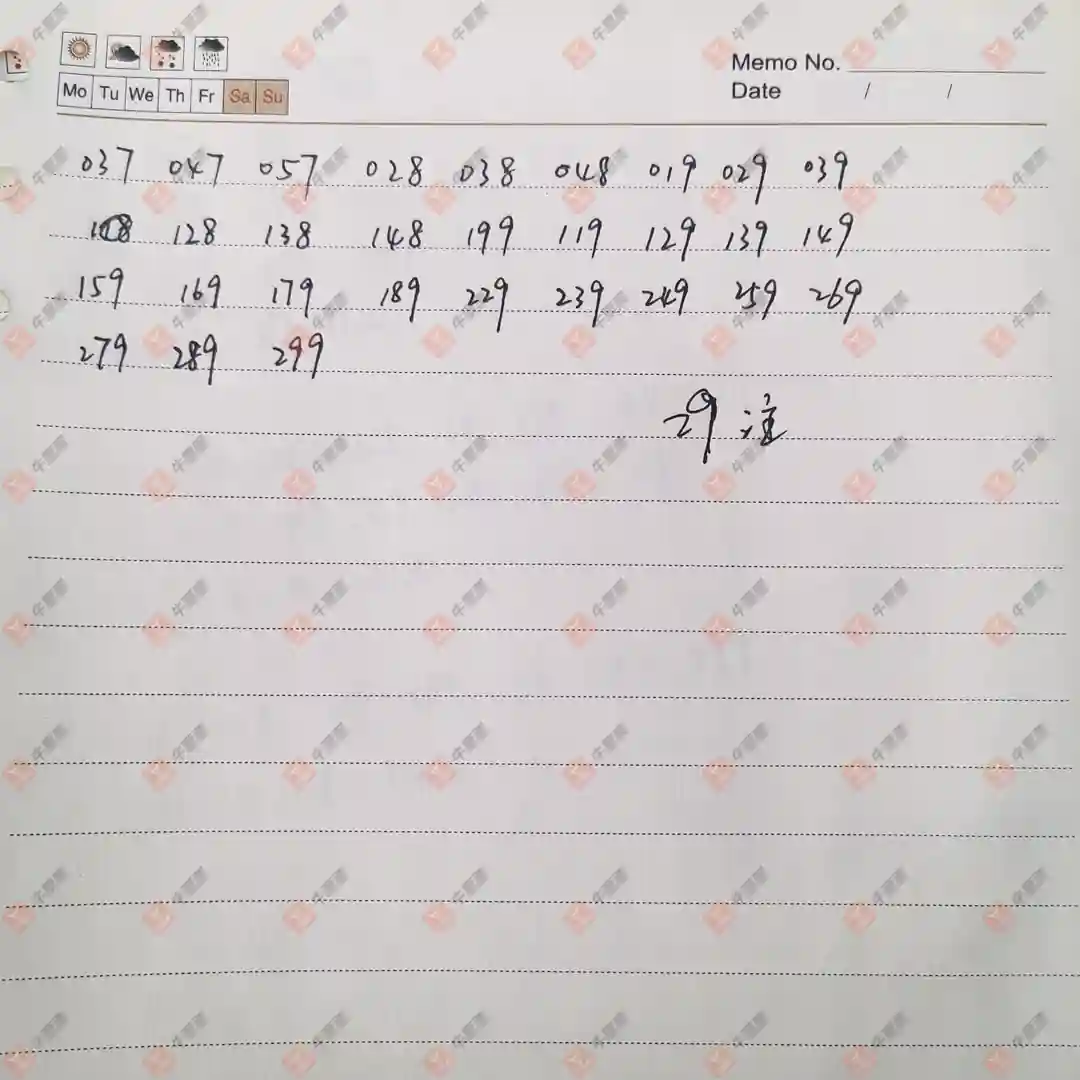 Memo No.
Mo Tu We Th Fr Sa Su
Date / /
037 047 057 028 038 048 019 029 039
128 138 148 199 119 129 139 149
159 169 179 189 229 239 249 259 269
279 289 299
29 注